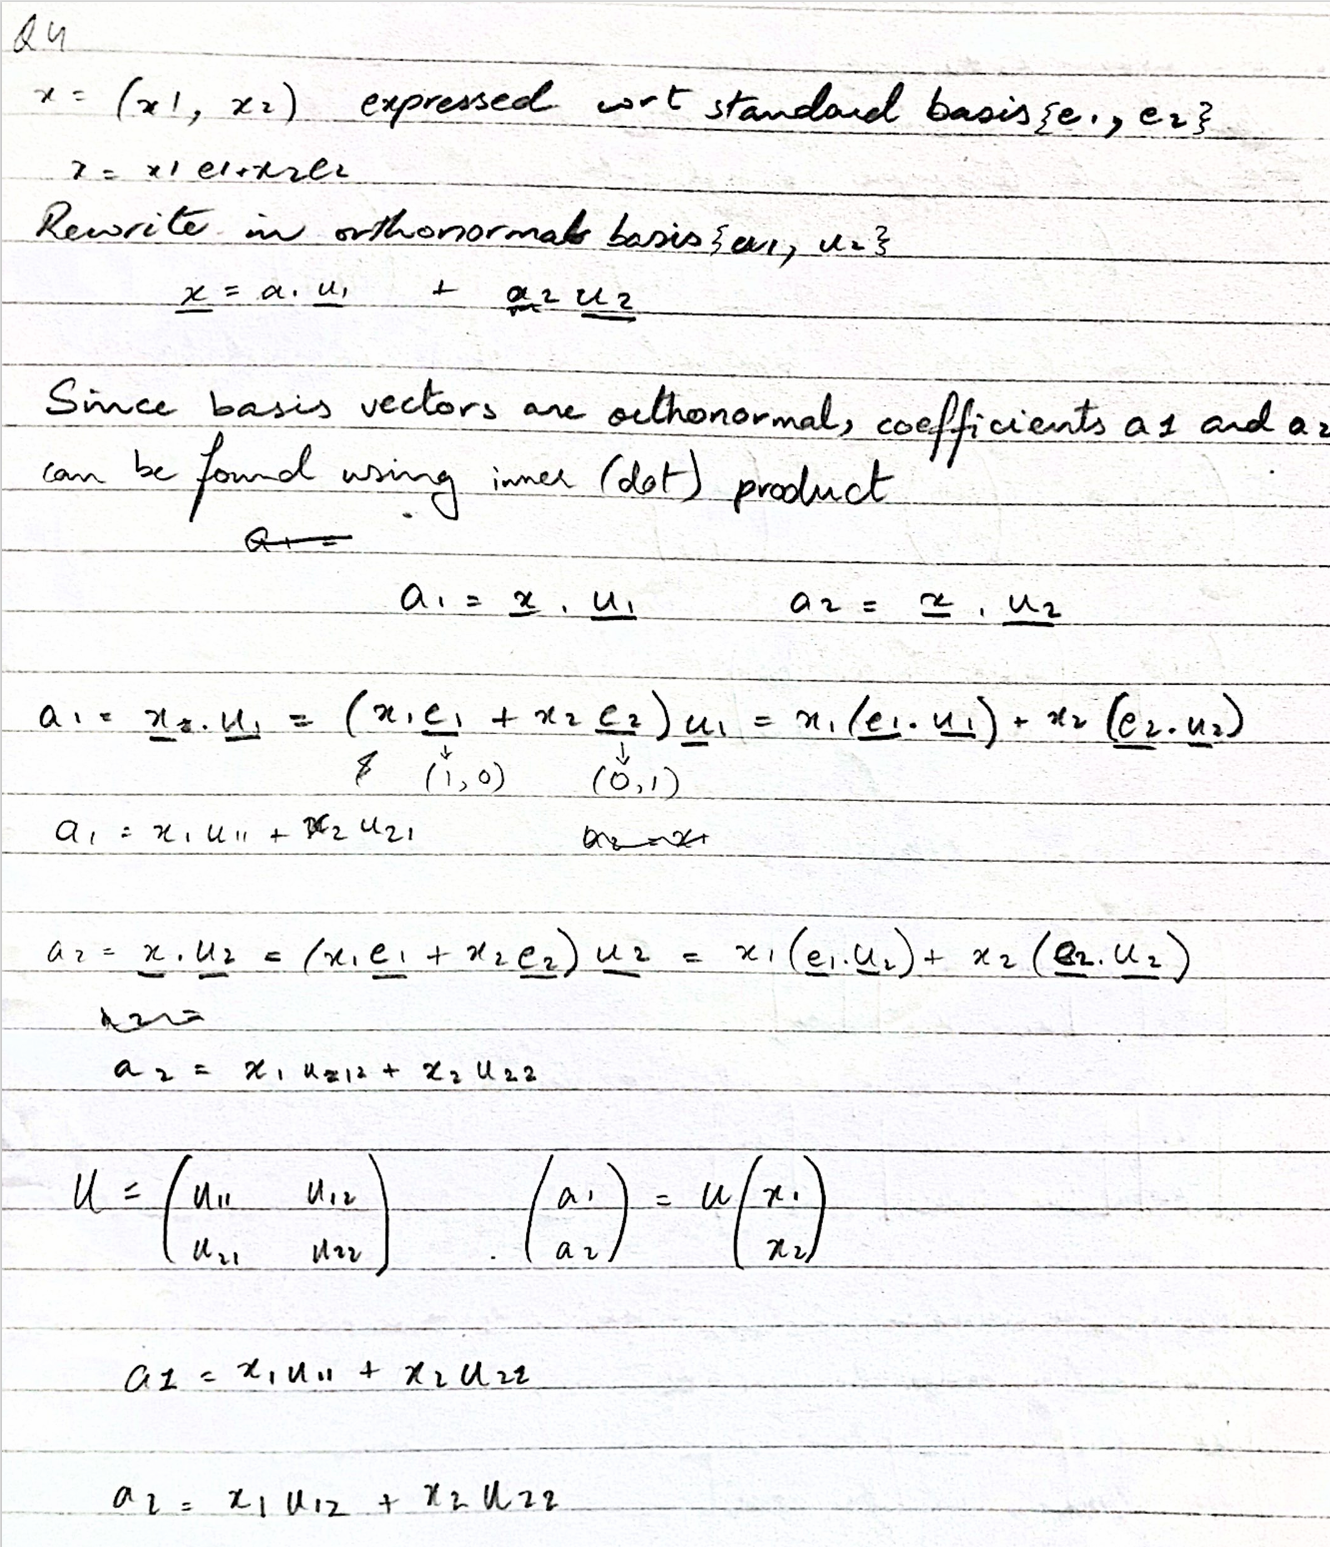 Q4
x = (x1, x2) expressed wrt standard basis {e1, e2}
x = x1 e1+x2e2
Rewrite in orthonormal basis {u1, u2}
x = a1 u1 + a2 u2
Since basis vectors are orthonormal, coefficients a1 and a2
can be found using inner (dot) product
a1 =
a1 = x . u1 a2 = x . u2
a1 = x . u1 = (x1e1 + x2 e2) u1 = x1(e1. u1) + x2 (e2. u2)
(1,0) (0,1)
a1 = x1 u11 + x2 u21
a2 = x . u2 = (x1 e1 + x2 e2) u2 = x1 (e1.u2) + x2 (e2. u2)
a2 = x1 u12 + x2 u22
U = (u11 u12 (a1 ) = U (x1 )
u21 u22) a2 x2
a1 = x1 u11 + x2 u21
a2 = x1 u12 + x2 u22